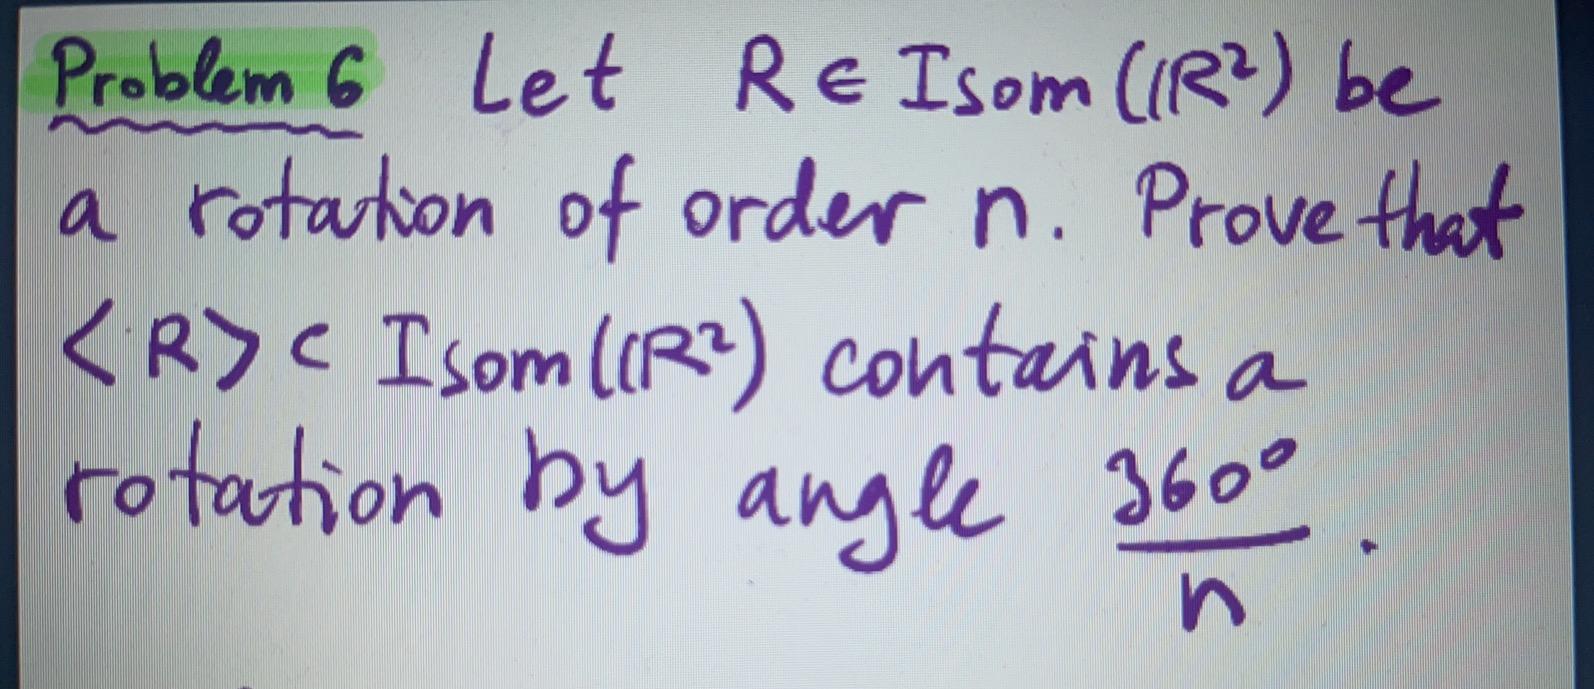 Problem 6 Let R ∈ Isom (ℝ²) be
a rotation of order n. Prove that
<R> ⊂ Isom (ℝ²) contains a
rotation by angle 360°
n .